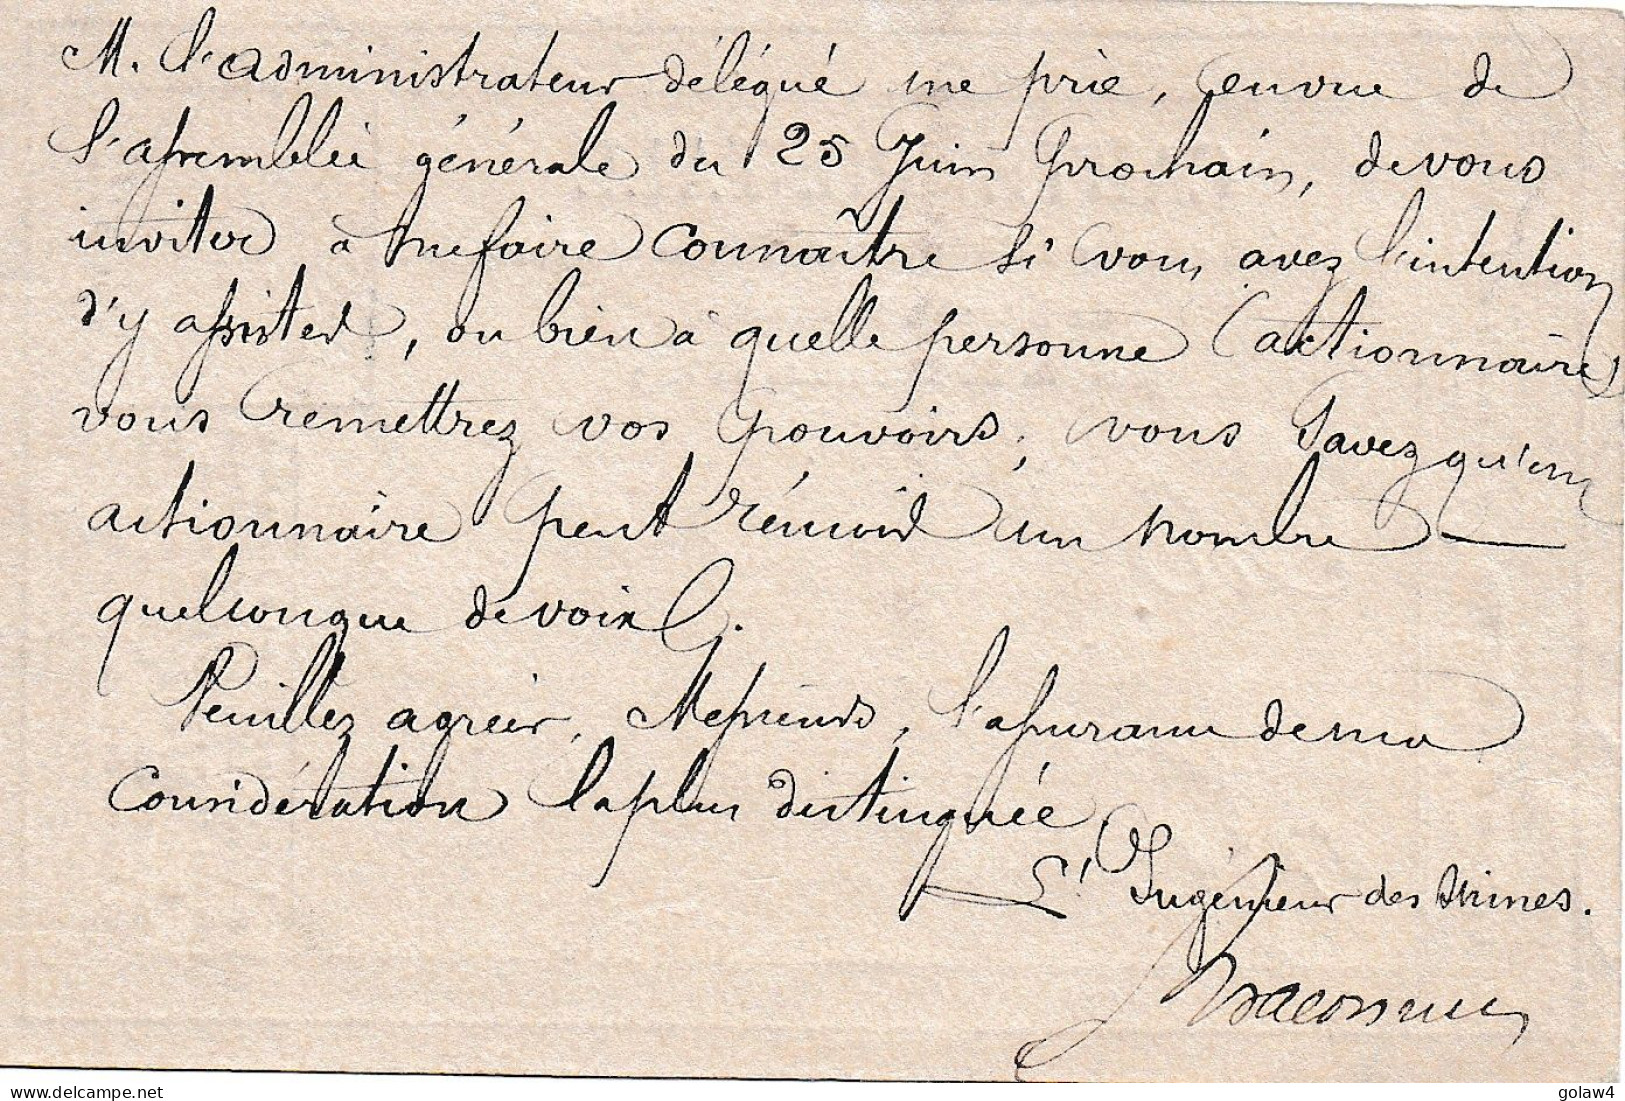 M. l'administrateur délégué me prie, en vue de
l'assemblée générale du 25 Juin prochain, de vous
inviter à me faire connaître si vous avez l'intention
d'y assister, ou bien à quelle personne (actionnaire)
vous remettrez vos pouvoirs; vous savez qu'un
actionnaire peut réunir un nombre
quelconque de voix.
Veuillez agréer, Messieurs, l'assurance de ma
considération la plus distinguée,
L'Ingénieur des Mines.
delcampe.net
golaw4